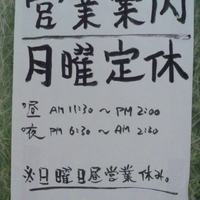 営業案内
月曜定休
昼 AM 11:30 ～ PM 2:00
夜 PM 6:30 ～ AM 2:30
※日曜日昼営業休み。